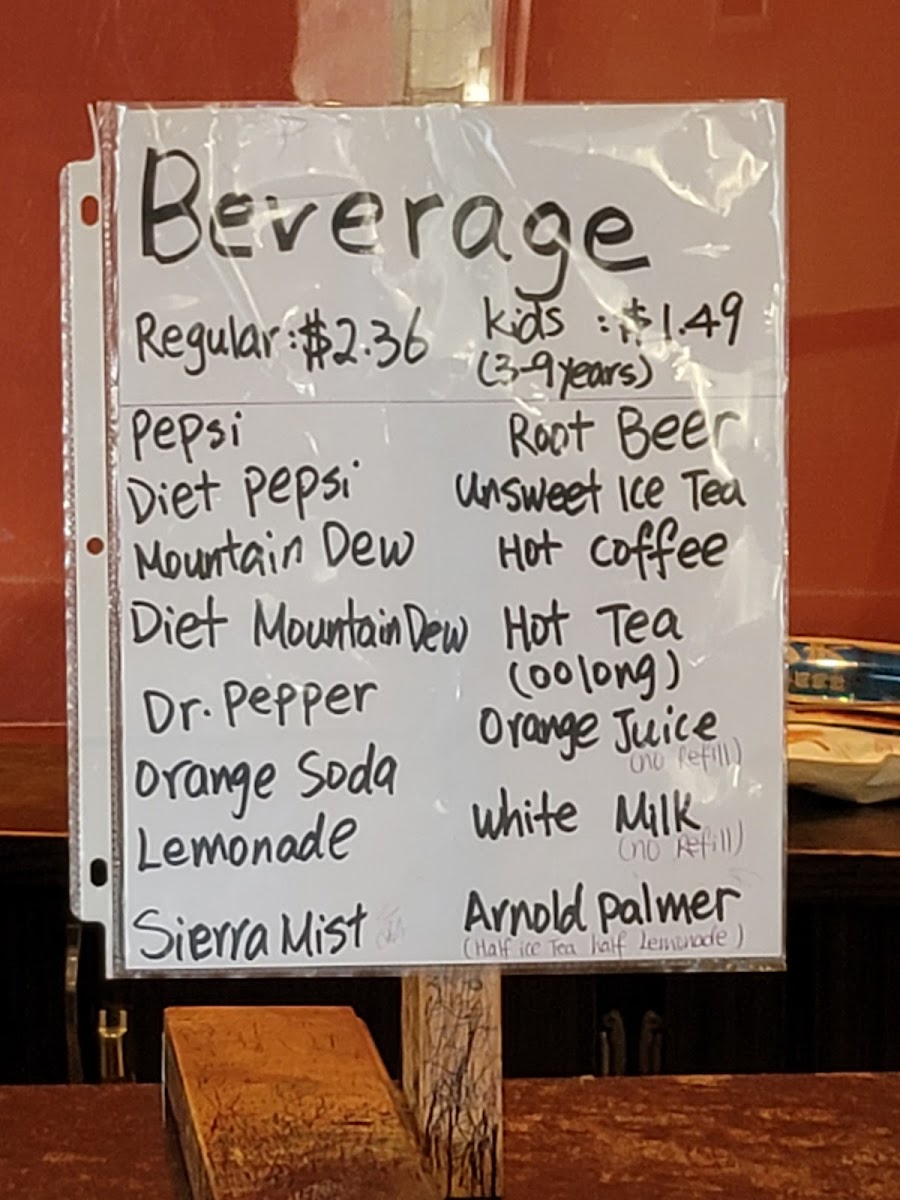 Beverage
Regular: $2.36
Kids : $1.49
(3-9 years)
Pepsi
Diet Pepsi
Mountain Dew
Diet Mountain Dew
Dr. Pepper
Orange Soda
Lemonade
Sierra Mist
Root Beer
Unsweet Ice Tea
Hot Coffee
Hot Tea
(oolong)
Orange Juice
(no Refill)
White Milk
(no Refill)
Arnold Palmer
(Half ice Tea half Lemonade)